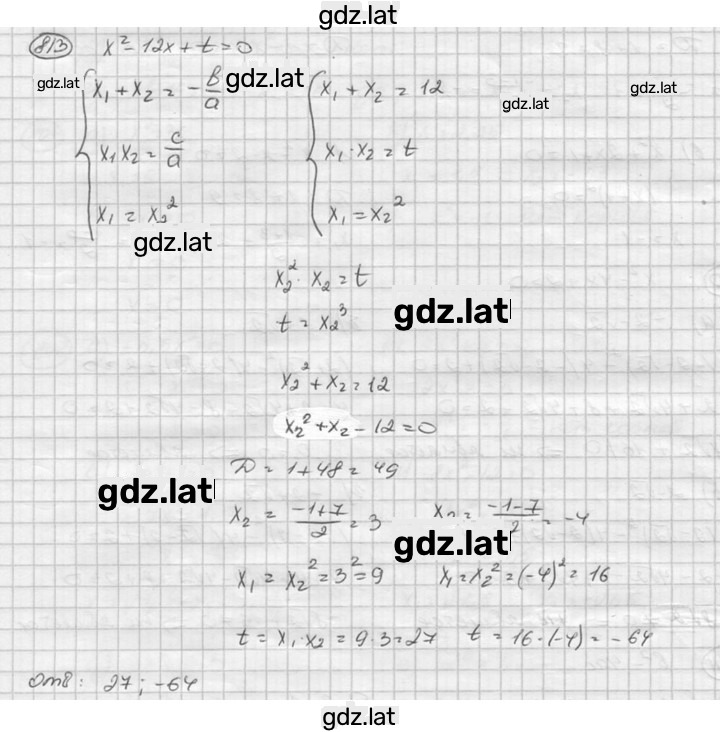 gdz.lat
813 x² - 12x + t = 0
gdz.lat
x₁ + x₂ = -b/a
gdz.lat
x₁ + x₂ = 12
gdz.lat
gdz.lat
x₁x₂ = c/a
x₁ · x₂ = t
x₁ = x₂²
x₁ = x₂²
gdz.lat
x₂² · x₂ = t
t = x₂³
gdz.lat
x₂² + x₂ = 12
x₂² + x₂ - 12 = 0
D = 1 + 48 = 49
gdz.lat
x₂ = (-1+7)/2 = 3
x₂ = (-1-7)/2 = -4
gdz.lat
x₁ = x₂² = 3² = 9
x₁ = x₂² = (-4)² = 16
t = x₁ · x₂ = 9 · 3 = 27
t = 16 · (-4) = -64
Отв: 27; -64
gdz.lat